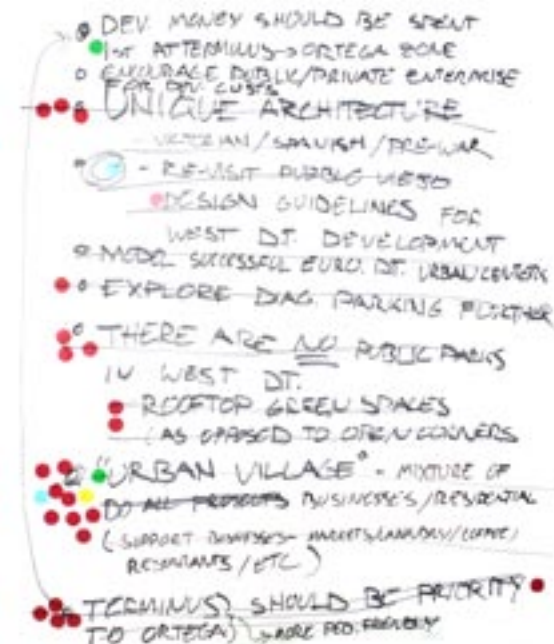 DEV. MONEY SHOULD BE SPENT
1ST AT TERMINUS → ORTEGA ZONE
ENCOURAGE PUBLIC/PRIVATE ENTERPRISE
FOR DEV.
UNIQUE ARCHITECTURE
/ SPANISH / PRE-WAR
- RE-VISIT PUEBLO VIEJO
DESIGN GUIDELINES FOR
WEST DT. DEVELOPMENT
MODEL SUCCESSFUL EURO. DT. URBAN CENTERS
EXPLORE DIAG. PARKING FURTHER
THERE ARE NO PUBLIC PARKS
IN WEST DT.
ROOFTOP GREEN SPACES
(AS OPPOSED TO OPEN CORNERS
"URBAN VILLAGE" - MIXTURE OF
DO ALL PROJECTS BUSINESSES/RESIDENTIAL
(SUPPORT BUSINESSES - MARKETS/LAUNDRY/COFFEE/
RESTAURANTS/ETC.)
TERMINUS) SHOULD BE PRIORITY
TO ORTEGA) MORE PED. FRIENDLY